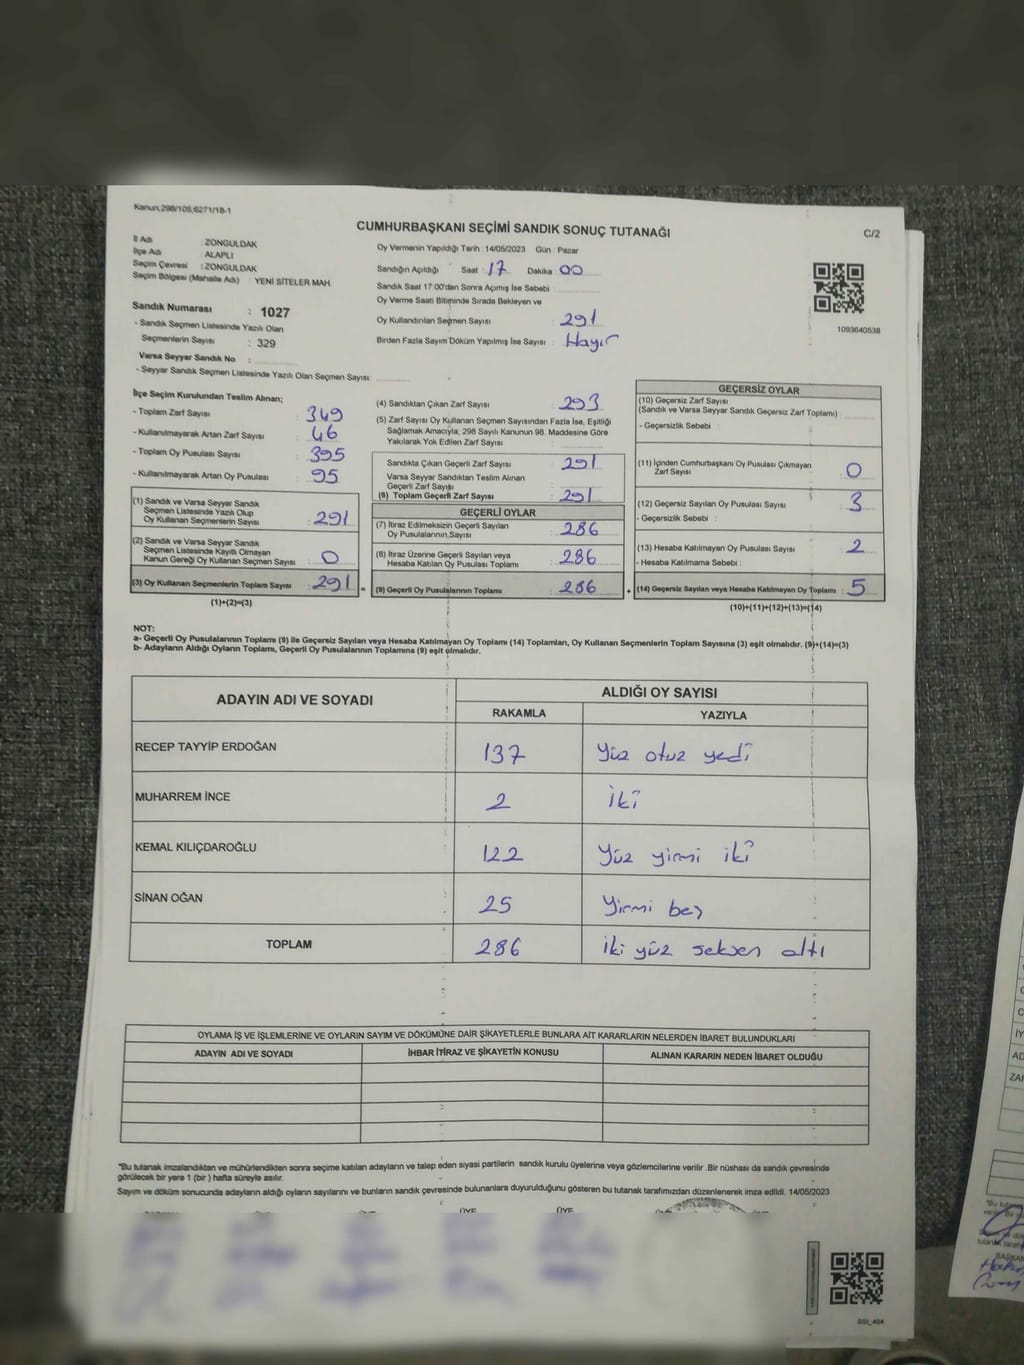 Kanun;298/105,6271/18-1
CUMHURBAŞKANI SEÇİMİ SANDIK SONUÇ TUTANAĞI
C/2
İl Adı : ZONGULDAK
İlçe Adı : ALAPLI
Seçim Çevresi : ZONGULDAK
Seçim Bölgesi (Mahalle Adı) : YENİ SİTELER MAH.
Sandık Numarası : 1027
- Sandık Seçmen Listesinde Yazılı Olan
Seçmenlerin Sayısı : 329
Varsa Seyyar Sandık No :
- Seyyar Sandık Seçmen Listesinde Yazılı Olan Seçmen Sayısı:
Oy Vermenin Yapıldığı Tarih : 14/05/2023 Gün : Pazar
Sandığın Açıldığı Saat 17 Dakika 00
Sandık Saat 17:00'dan Sonra Açılmış İse Sebebi :
Oy Verme Saati Bitiminde Sırada Bekleyen ve
Oy Kullandırılan Seçmen Sayısı : 291
Birden Fazla Sayım Döküm Yapılmış İse Sayısı : Hayır
1093640538
İlçe Seçim Kurulundan Teslim Alınan;
- Toplam Zarf Sayısı : 349
- Kullanılmayarak Artan Zarf Sayısı : 46
- Toplam Oy Pusulası Sayısı : 395
- Kullanılmayarak Artan Oy Pusulası : 95
(1) Sandık ve Varsa Seyyar Sandık
Seçmen Listesinde Yazılı Olup
Oy Kullanan Seçmenlerin Sayısı : 291
(2) Sandık ve Varsa Seyyar Sandık
Seçmen Listesinde Kayıtlı Olmayan
Kanun Gereği Oy Kullanan Seçmen Sayısı : 0
(3) Oy Kullanan Seçmenlerin Toplam Sayısı : 291 =
(1)+(2)=(3)
(4) Sandıktan Çıkan Zarf Sayısı : 293
(5) Zarf Sayısı Oy Kullanan Seçmen Sayısından Fazla İse, Eşitliği
Sağlamak Amacıyla; 298 Sayılı Kanunun 98. Maddesine Göre
Yakılarak Yok Edilen Zarf Sayısı :
Sandıkta Çıkan Geçerli Zarf Sayısı : 291
Varsa Seyyar Sandıktan Teslim Alınan
Geçerli Zarf Sayısı :
(6) Toplam Geçerli Zarf Sayısı : 291
GEÇERLİ OYLAR
(7) İtiraz Edilmeksizin Geçerli Sayılan
Oy Pusulalarının Sayısı : 286
(8) İtiraz Üzerine Geçerli Sayılan veya
Hesaba Katılan Oy Pusulası Toplamı : 286
(9) Geçerli Oy Pusulalarının Toplamı : 286 +
GEÇERSİZ OYLAR
(10) Geçersiz Zarf Sayısı
(Sandık ve Varsa Seyyar Sandık Geçersiz Zarf Toplamı) :
- Geçersizlik Sebebi :
(11) İçinden Cumhurbaşkanı Oy Pusulası Çıkmayan
Zarf Sayısı : 0
(12) Geçersiz Sayılan Oy Pusulası Sayısı : 3
- Geçersizlik Sebebi :
(13) Hesaba Katılmayan Oy Pusulası Sayısı : 2
- Hesaba Katılmama Sebebi :
(14) Geçersiz Sayılan veya Hesaba Katılmayan Oy Toplamı : 5
(10)+(11)+(12)+(13)=(14)
NOT:
a- Geçerli Oy Pusulalarının Toplamı (9) ile Geçersiz Sayılan veya Hesaba Katılmayan Oy Toplamı (14) Toplamları, Oy Kullanan Seçmenlerin Toplam Sayısına (3) eşit olmalıdır. (9)+(14)=(3)
b- Adayların Aldığı Oyların Toplamı, Geçerli Oy Pusulalarının Toplamına (9) eşit olmalıdır.
ADAYIN ADI VE SOYADI
ALDIĞI OY SAYISI
RAKAMLA YAZIYLA
RECEP TAYYİP ERDOĞAN 137 Yüz otuz yedi
MUHARREM İNCE 2 İki
KEMAL KILIÇDAROĞLU 122 Yüz yirmi iki
SİNAN OĞAN 25 Yirmi beş
TOPLAM 286 İki yüz seksen altı
OYLAMA İŞ VE İŞLEMLERİNE VE OYLARIN SAYIM VE DÖKÜMÜNE DAİR ŞİKAYETLERLE BUNLARA AİT KARARLARIN NELERDEN İBARET BULUNDUKLARI
ADAYIN ADI VE SOYADI İHBAR İTİRAZ VE ŞİKAYETİN KONUSU ALINAN KARARIN NEDEN İBARET OLDUĞU
*Bu tutanak imzalandıktan ve mühürlendikten sonra seçime katılan adayların ve talep eden siyasi partilerin sandık kurulu üyelerine veya gözlemcilerine verilir .Bir nüshası da sandık çevresinde
görülecek bir yere 1 (bir ) hafta süreyle asılır.
Sayım ve döküm sonucunda adayların aldığı oyların sayılarını ve bunların sandık çevresinde bulunanlara duyurulduğunu gösteren bu tutanak tarafımızdan düzenlenerek imza edildi. 14/05/2023
ÜYE ÜYE
SSI_404